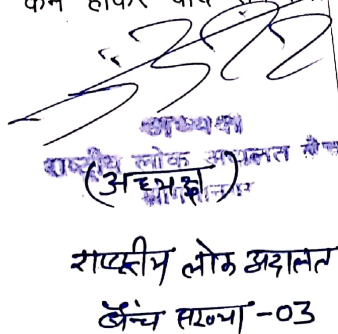 कम होकर
अध्यक्ष
राष्ट्रीय लोक अदालत
(अध्यक्ष)
राष्ट्रीय लोक अदालत
बेंच संख्या -03